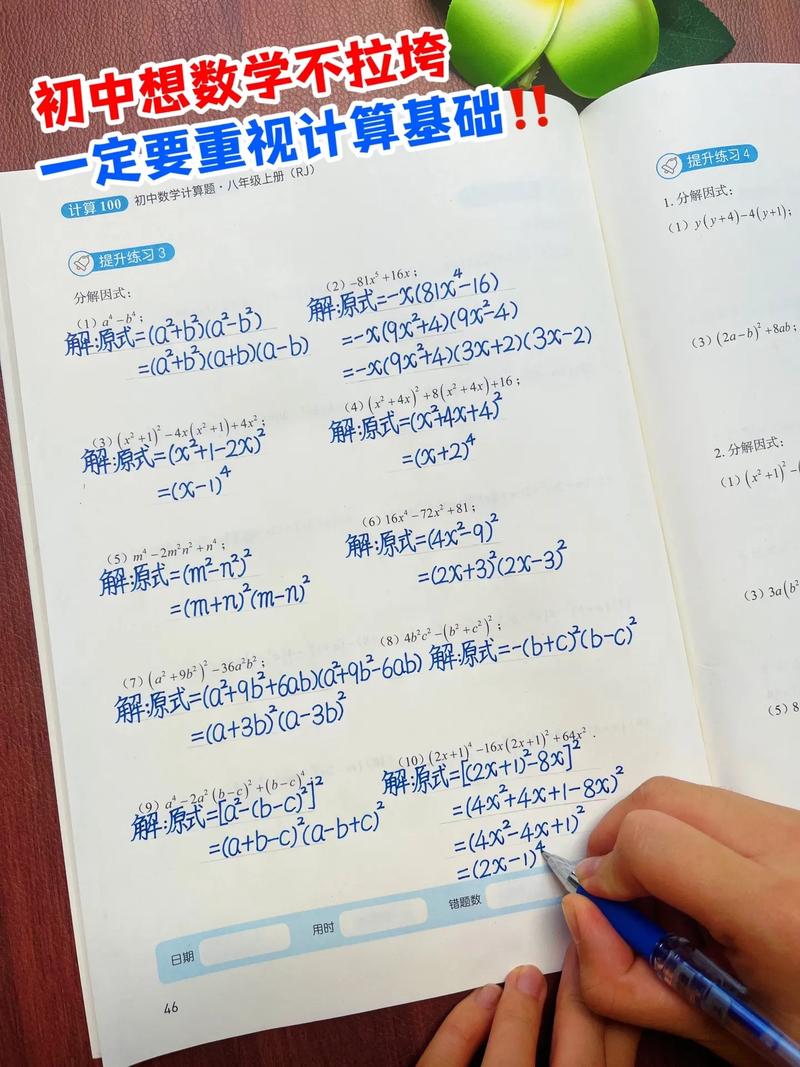 初中想数学不拉垮
一定要重视计算基础!!
计算 100 初中数学计算题·八年级上册（RJ）
提升练习 3
分解因式：
（1）a⁴－b⁴；
解：原式=(a²+b²)(a²-b²)
=(a²+b²)(a+b)(a-b)
（2）－81x⁵＋16x；
解：原式=-x(81x⁴-16)
=-x(9x²+4)(9x²-4)
=-x(9x²+4)(3x+2)(3x-2)
（3）(x²＋1)²－4x(x²＋1)＋4x²；
解：原式=(x²+1-2x)²
=(x-1)⁴
（4）(x²＋4x)²＋8(x²＋4x)＋16；
解：原式=(x²+4x+4)²
=(x+2)⁴
（5）m⁴－2m²n²＋n⁴；
解：原式=(m²-n²)²
=(m+n)²(m-n)²
（6）16x⁴－72x²＋81；
解：原式=(4x²-9)²
=(2x+3)²(2x-3)²
（7）(a²＋9b²)²－36a²b²；
解：原式=(a²+9b²+6ab)(a²+9b²-6ab)
=(a+3b)²(a-3b)²
（8）4b²c²－(b²＋c²)²；
解：原式=-(b+c)²(b-c)²
（9）a⁴－2a²(b－c)²＋(b－c)⁴；
解：原式=[a²-(b-c)²]²
=(a+b-c)²(a-b+c)²
（10）(2x＋1)⁴－16x(2x＋1)²＋64x².
解：原式=[(2x+1)²-8x]²
=(4x²+4x+1-8x)²
=(4x²-4x+1)²
=(2x-1)⁴
日期 用时 错题数
46
提升练习 4
1. 分解因式：
（1）y(y＋4)－4(y＋1)；
（3）(2a－b)²＋8ab；
2. 分解因式：
（1）(x²＋1)²－
（3）3a(b²
（5）8